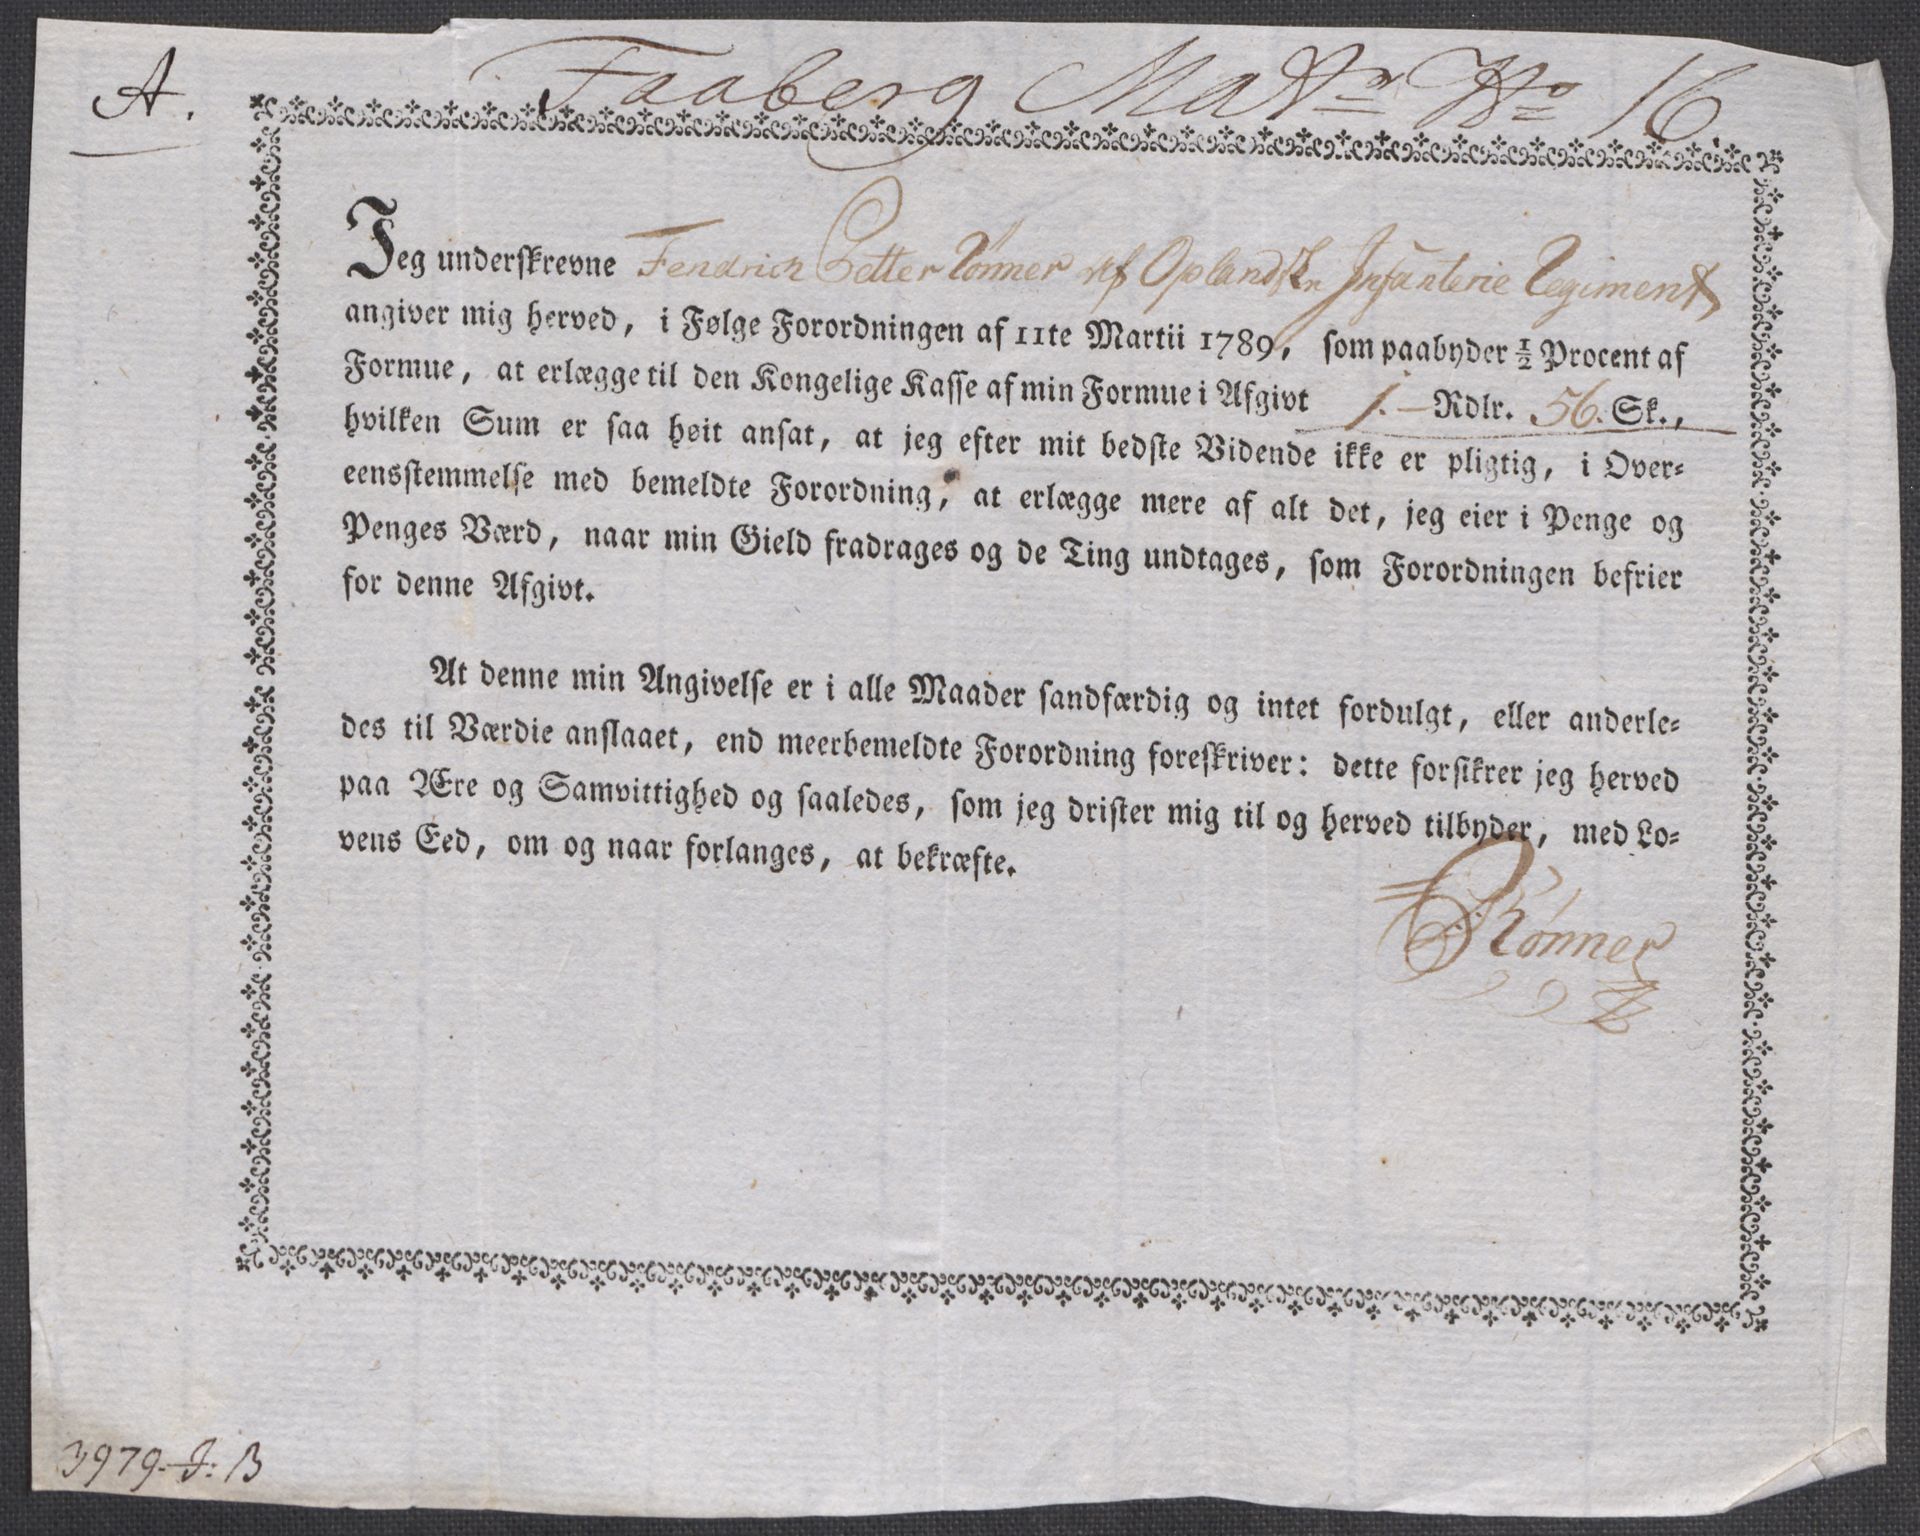 A.
Faaberg Mattr No 16.
Jeg underskrevne Fendrich Petter Rønner af Oplandske Infanterie Regiment
angiver mig herved, i Følge Forordningen af 11te Martii 1789, som paabyder ½ Procent af
Formue, at erlægge til den Kongelige Kasse af min Formue i Afgivt 1.— Rdlr. 56. Sk.,
hvilken Sum er saa høit ansat, at jeg efter mit bedste Vidende ikke er pligtig, i Over-
eensstemmelse med bemeldte Forordning, at erlægge mere af alt det, jeg eier i Penge og
Penges Værd, naar min Gield fradrages og de Ting undtages, som Forordningen befrier
for denne Afgivt.
At denne min Angivelse er i alle Maader sandfærdig og intet fordulgt, eller anderle-
des til Værdie anslaaet, end meerbemeldte Forordning foreskriver: dette forsikrer jeg herved
paa Ære og Samvittighed og saaledes, som jeg drister mig til og herved tilbyder, med Lo-
vens Eed, om og naar forlanges, at bekræfte.
PRønner
3979. J: B